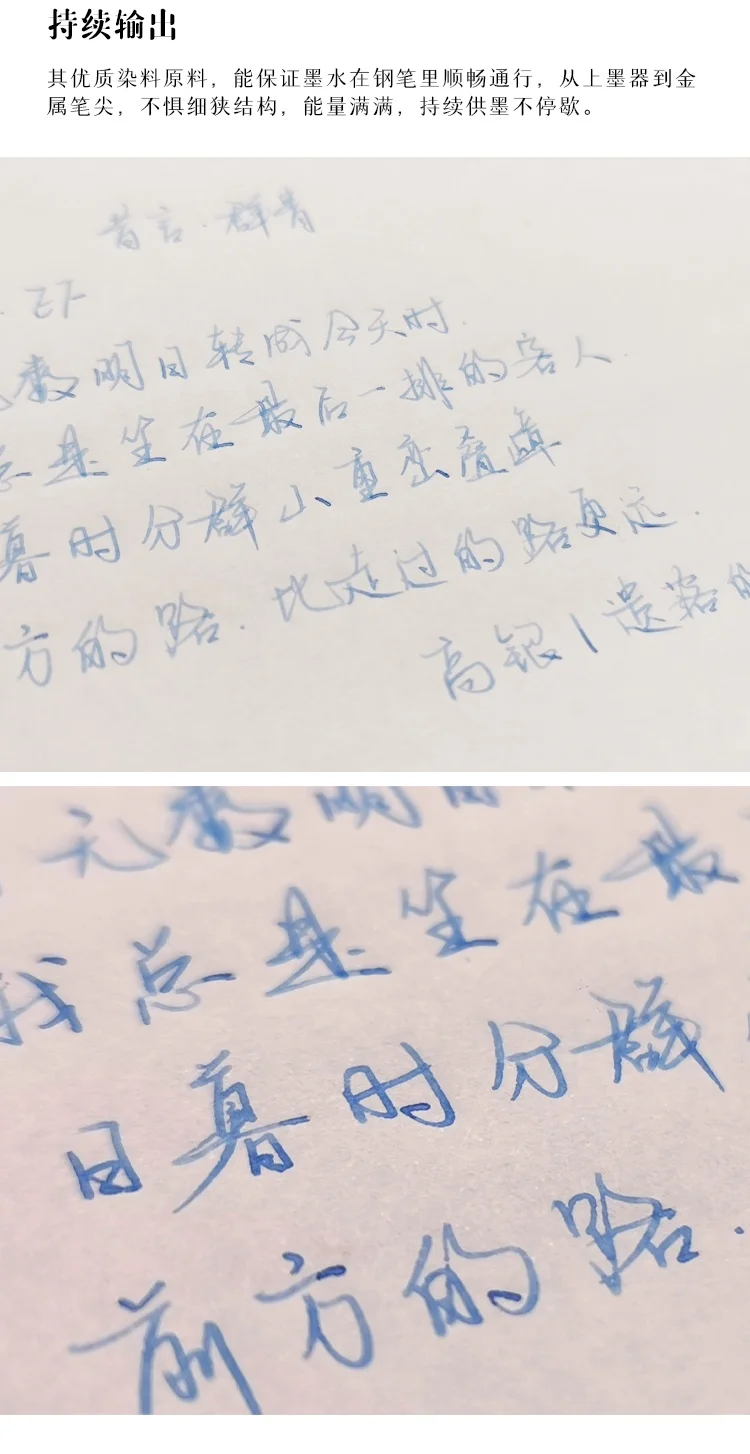 持续输出
其优质染料原料，能保证墨水在钢笔里顺畅通行，从上墨器到金
属笔尖，不惧细狭结构，能量满满，持续供墨不停歇。
昔言·群青
数明日转成今天时.
总是坐在最后一排的客人
暮时分群山重峦叠嶂
方的路.比走过的路更远.
高银
无数明日
我总是坐在最
日暮时分群
前方的路.